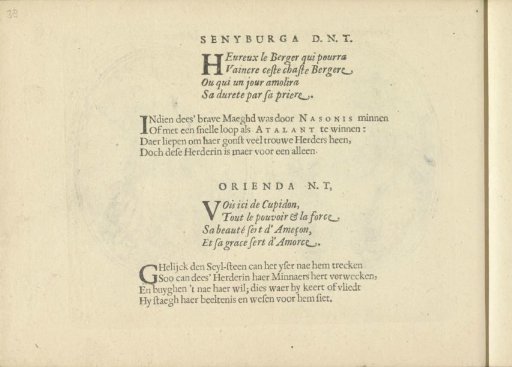 38
SENYBURGA D.N.T.
HEureux le Berger qui pourra
Vaincre ceste chaste Bergere.
Ou qui un jour amolira
Sa durete par sa priere.
INdien dees' brave Maeghd was door NASONIS minnen
Of met een snelle loop als ATALANT te winnen:
Daer liepen om haer gonst veel trouwe Herders heen,
Doch dese Herderin is maer voor een alleen.
ORIENDA N.T,
VOis ici de Cupidon,
Tout le pouvoir & la force.
Sa beauté sert d'Ameçon,
Et sa grace sert d'Amorce.
GHelijck den Seyl-steen can het yser nae hem trecken
Soo can dees' Herderin haer Minnaers hert verwecken,
En buyghen 't nae haer wil; dies waer hy keert of vliedt
Hy staegh haer beeltenis en wesen voor hem siet.